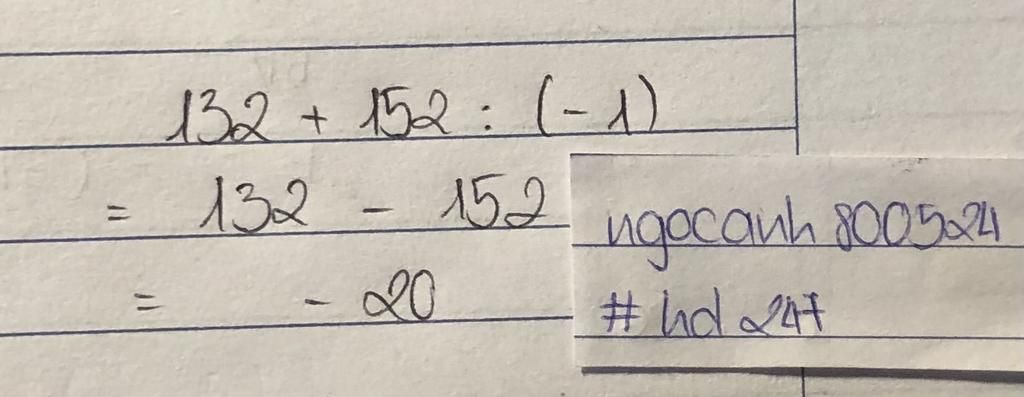 132 + 152 : (-1)
= 132 - 152
= - 20
ngocanh 800524
# hd 247